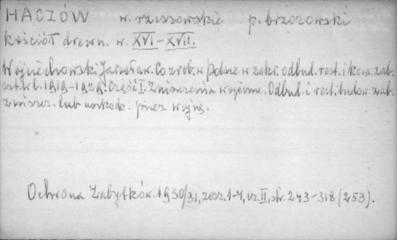 HACZÓW w. rzeszowskie p. brzozowski
kościół drewn. w. XVI-XVII.
Wojciechowski Jarosław. Co zrob. w Polsce w zakr. odbud. rest. i kons. zab.
szt. w l. 1919-1929. Część I. Zniszczenia wojenne. Odbud. i rest. budow. zab.
zniszcz. lub uszkodz. przez wojnę.
Ochrona Zabytków. 1930/31, zesz. 1-4, cz. II, str. 243-318 (253).